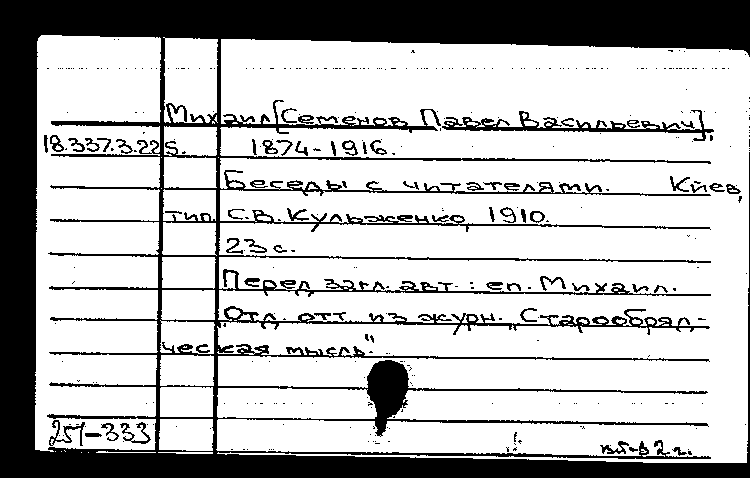 Михаил [Семенов, Павел Васильевич],
18.337.3.225. 1874-1916.
Беседы с читателями. Киев,
тип. С.В. Кульженко, 1910.
23 с.
Перед загл. авт.: еп. Михаил.
"Отд. отт. из журн. „Старообряд-
ческая мысль"
251-333